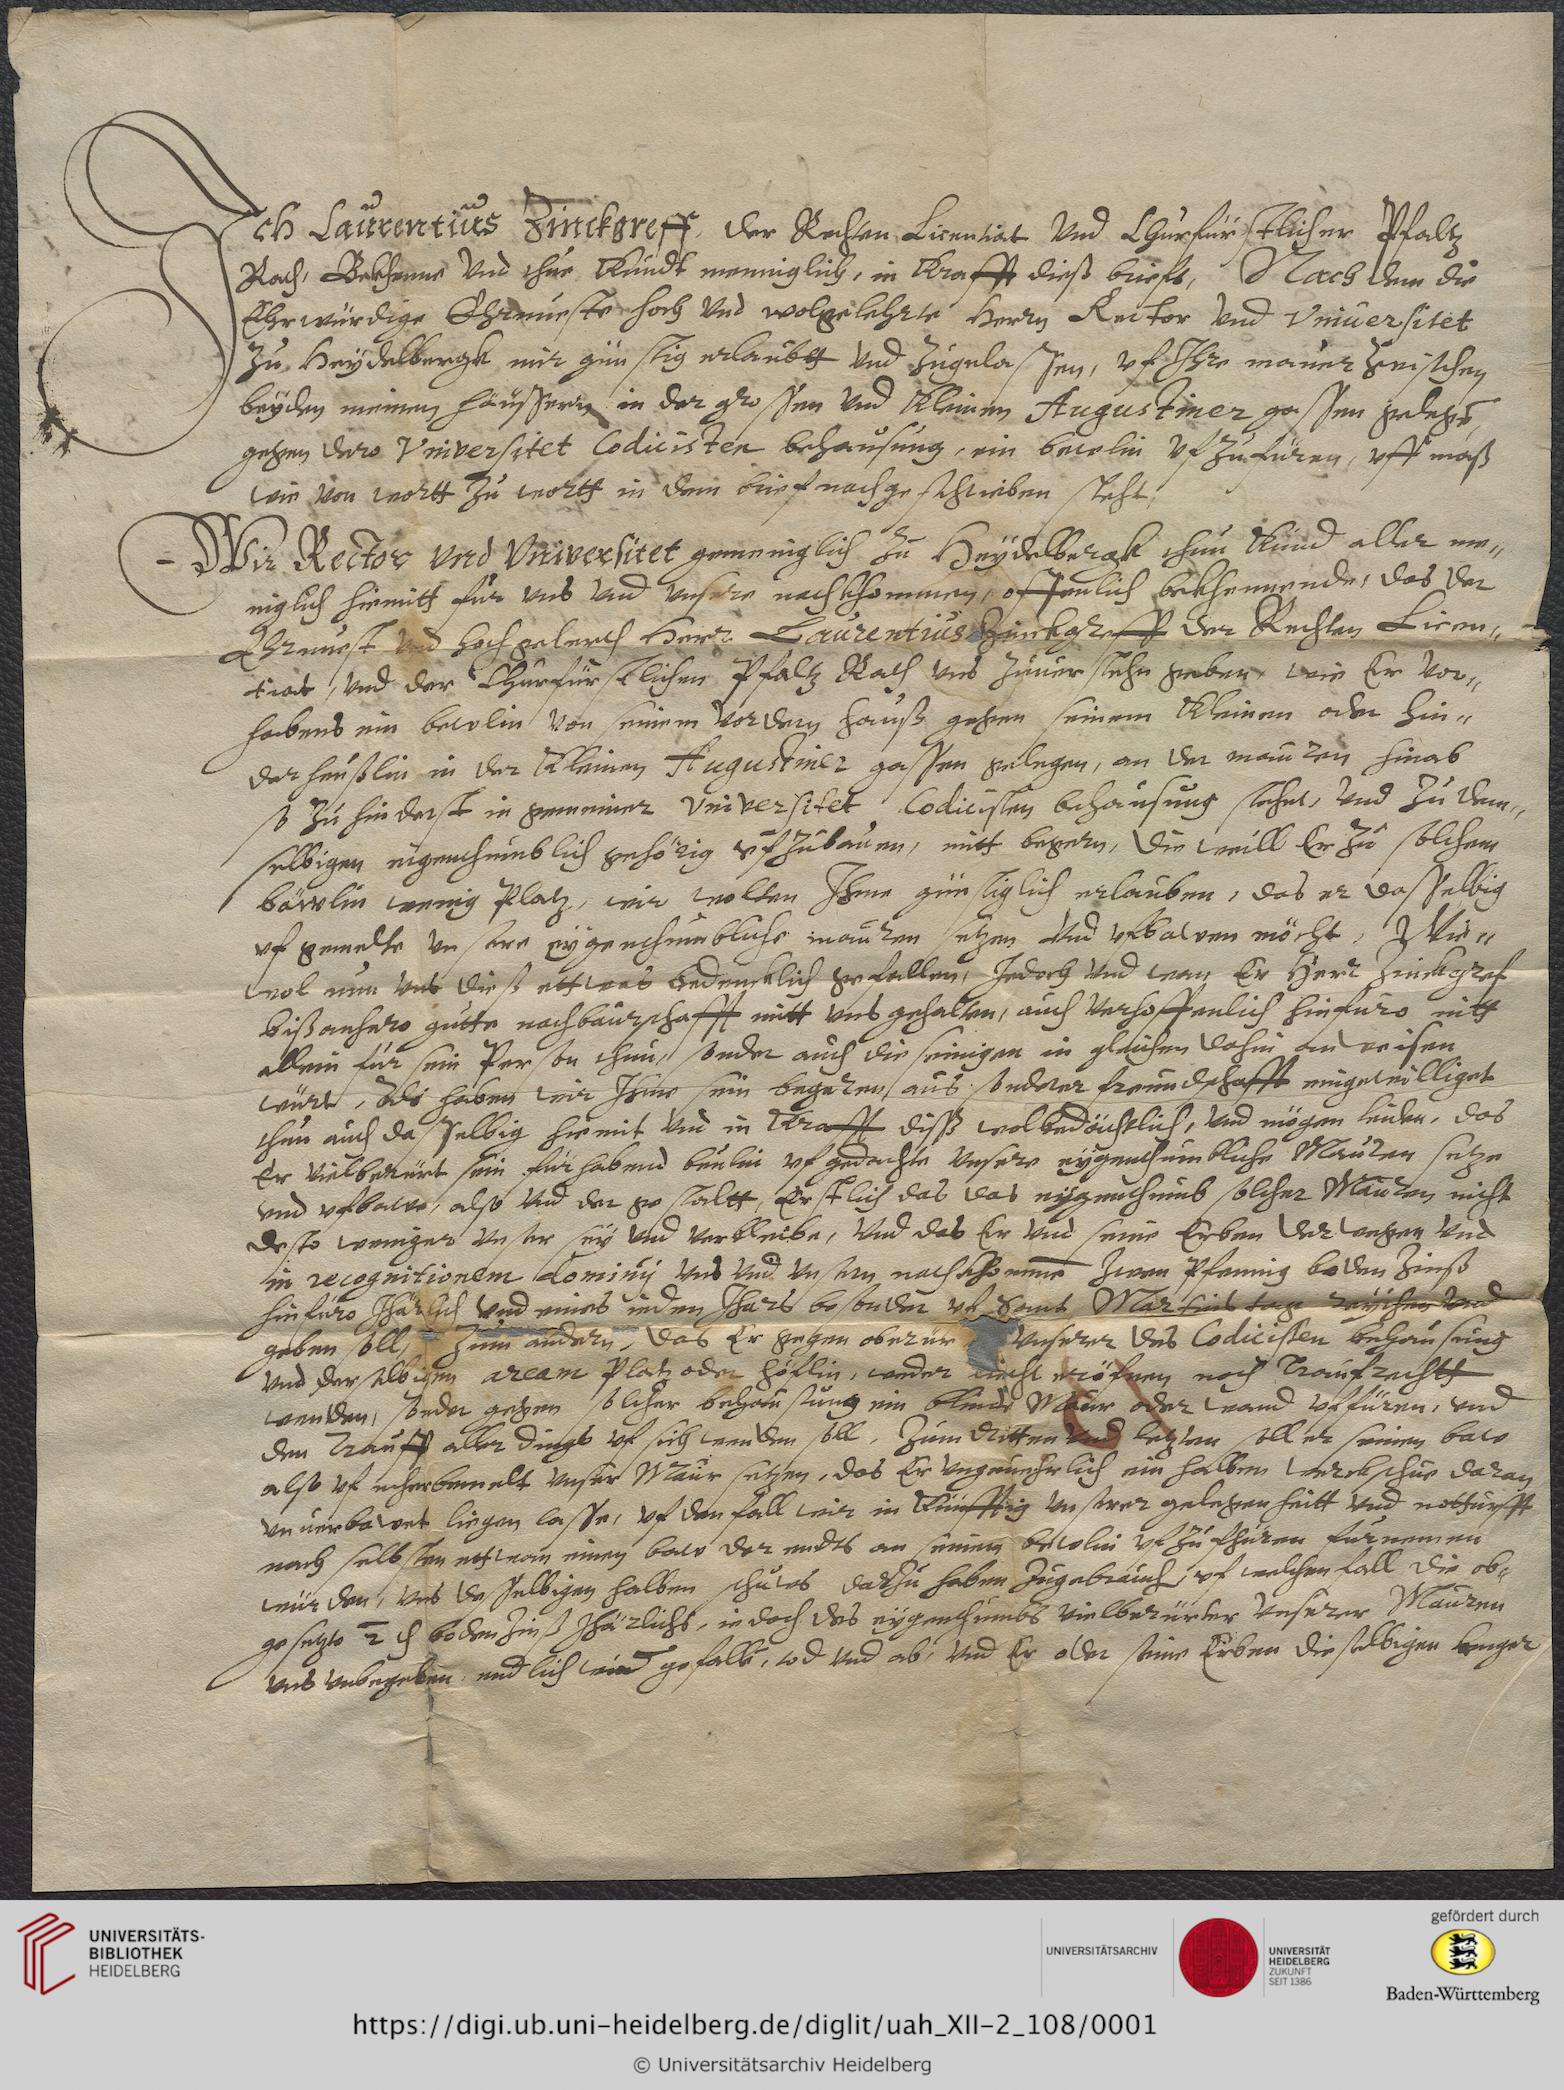 Ich Laurentius Zinckgreff, der Rechten Licentiat vnd Churfürstlicher Pfaltz
Rath, Bekhenne vnd thue kundt menniglich, in krafft dieß brieffs, Nach dem die
Ehrwürdige Ehrnueste hoch vnd wolgelehrte Herrn Rector vnd Vniuersitet
Zu Heydelbergk mir günstig erlaubtt vnd zugelassen, vf Ihre maur zwischen
beyden meinen häussern in der grossen vnd kleinen Augustiner gassen gelegen,
gegen dero Vniversitet Codicisten behausung, ein bewlin vfzufüren, vff maß
wie von wortt zu wortt in dem brief nachgeschrieben steht,
Wir Rector vnd Vniversitet gemeniglich zu Heydelbergk thun kund aller me„
niglich hiemitt für vns vnd vnsere nachkhommen, offenlich bekhennende, das der
Ehrnuest vnd hochgelerth Herr Laurentius Zinckgreff der Rechten Licen„
tiat, vnd der Churfürstlichen Pfaltz Rath vns zuuerstehn geben, wie Er vor„
habens ein bewlin von seinem vordern hauß gegen seinem kleinen oder hin„
der heußlin in der kleinen Augustiner gassen gelegen, an der mauren hinab
so zu hinderst in gemeiner Vniversitet Codicisten behausung stehet, vnd zu dem„
selbigen eigenthumblich gehörig vfzubauen, mitt begern, die weill Er zu solchem
bäwlin wenig Platz, wir wolten Ihme günstiglich erlauben, das er dasselbig
vf gemelte vnsere eygenthumbliche mauren setzen vnd vfbawen möcht, Wie„
wol nun vns dieß ettwas bedencklich gefallen, Jedoch vnd wan Er Herr Zinckgref
bißanhero gutte nachbaurschafft mitt vns gehalten, auch verhoffenlich hinfuro nitt
allein für sein Person thun, sonder auch die seinigen in gleichen dahin anweisen
würt, Als haben wir Ihme sein begeren aus sonderer freundschafft eingewilliget
thun auch dasselbig hiemit vnd in krafft diß wolbedächtlich, vnd mögen leiden, das
Er vielberürt sein fürhabend beulin vf gedachte vnsere eygenthumbliche Mauren setze
vnd vfbawe, also vnd der gestaltt, Erstlich das das eygenthumb solcher Mauren nicht
desto weniger vnser sey vnd verbleibe, vnd das Er vnd seine Erben derwegen vnd
in recognitionem dominij vns vnd vnsern nachkhommen zwen Pfennig boden Zinß
hinfüro Jhärlich vnd eines ieden Jhars besonder vf Sant Martins tag reychen vnd
geben soll, Zum andern, das Er gegen oberur vnserer des Codicisten behausung
vnd derselbigen aream Platz oder höflin, weder liecht eröfnen noch Traufrechtt
wenden, sonder gegen solcher behausung ein blinde Maur oder wand vffüren, vnd
den Trauff allerdings vf sich wenden soll, Zum dritten vnd letzten soll er seinen baw
also vf mehrbemelt vnser Maur setzen, das Er vngeuehrlich ein halben werckschue daran
vnuerbawet liegen lasse, vf den fall wir in künfftig vnserer gelegenheitt vnd notturfft
nach selbsten ettwan einen baw der endts an seinen bewlin vfzufhüren fürnemen
würden, vns desselbigen halben schues darzu haben zugebrauch, vf welchen fall die ob„
gesetzte 2 ₰ boden Zinß Jhärlichs, iedoch des eygenthumbs vielberürter vnserer Mauren
vns vnbegeben endlich gefallen, tod vnd ab, vnd Er oder seine Erben dieselbigen lenger
UNIVERSITÄTS-
BIBLIOTHEK
HEIDELBERG
UNIVERSITÄTSARCHIV
UNIVERSITÄT
HEIDELBERG
ZUKUNFT
SEIT 1386
gefördert durch
Baden-Württemberg
https://digi.ub.uni-heidelberg.de/diglit/uah_XII-2_108/0001
© Universitätsarchiv Heidelberg